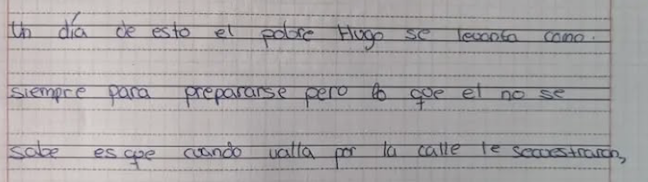 Un día de esto el pobre Hugo se levanta como.
siempre para prepararse pero lo que el no se
sabe es que cuando valla por la calle le secuestraron,